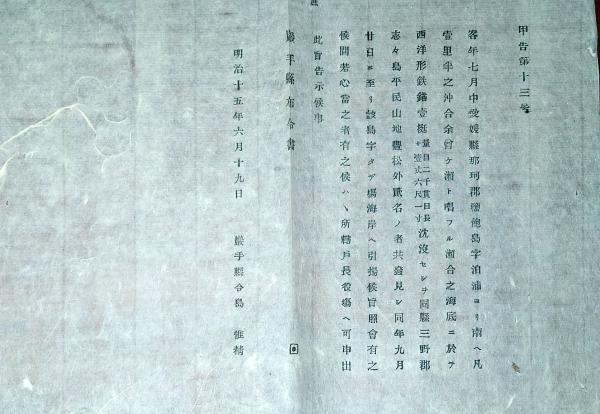 甲告第十三号
客年七月中愛媛縣那珂郡鹽飽島字泊浦ヨリ南ヘ凡
壹里半之沖合余曾ケ瀬ト唱フル瀬合之海底ニ於テ
西洋形鉄錨壹挺量目二千貫目長サ壹丈六尺一寸沈没セシヲ同縣三野郡
志々島平民山地豐松外貮名ノ者共發見シ同年九月
廿日ニ至リ該島字タデ場海岸ヘ引揚候旨照會有之
候間若心當之者有之候ハヽ所轄戸長役場ヘ可申出
此旨告示候事
巖手縣布令書
明治十五年六月十九日 巖手縣令島 惟精